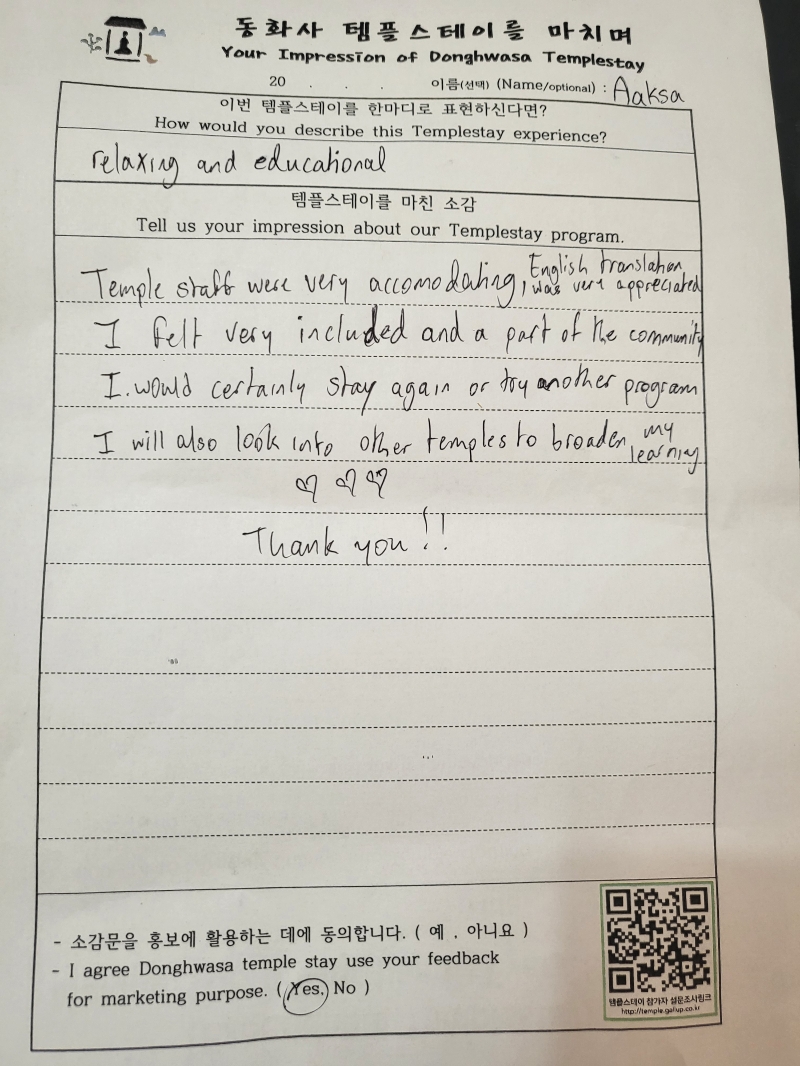 동화사 템플스테이를 마치며
Your Impression of Donghwasa Templestay
20 . . . 이름(선택) (Name/optional) : Aaksa
이번 템플스테이를 한마디로 표현하신다면?
How would you describe this Templestay experience?
relaxing and educational
템플스테이를 마친 소감
Tell us your impression about our Templestay program.
Temple staff were very accomodating, English translation was very appreciated
I felt very included and a part of the community
I would certainly stay again or try another program
I will also look into other temples to broaden my learning
Thank you!!
- 소감문을 홍보에 활용하는 데에 동의합니다. ( 예 , 아니요 )
- I agree Donghwasa temple stay use your feedback
for marketing purpose. ( Yes, No )
템플스테이 참가자 설문조사링크
http://temple.gallup.co.kr